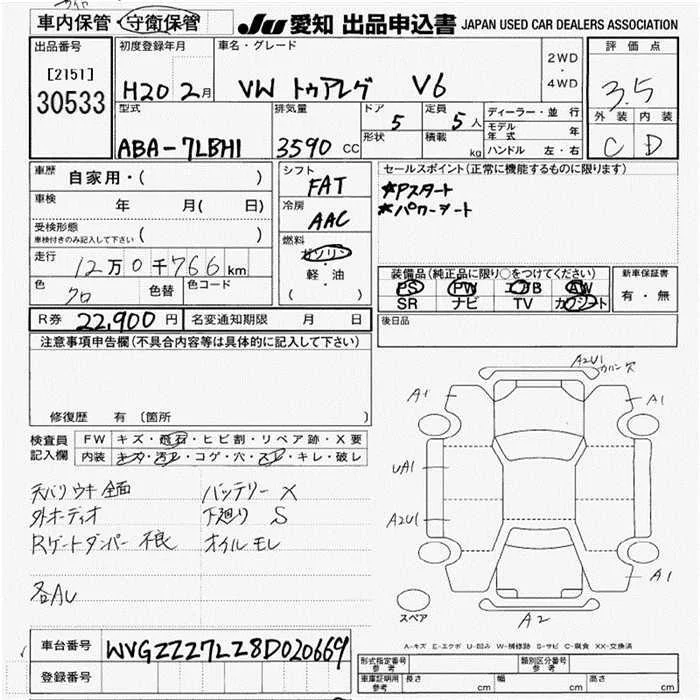 車内保管・守衛保管
JU 愛知 出品申込書 JAPAN USED CAR DEALERS ASSOCIATION
出品番号
[2151]
30533
初度登録年月
H20 2月
車名・グレード
VW トゥアレグ V6
2WD
・
4WD
評価点
3.5
外装 内装
C D
型式
ABA-7LBHI
排気量
3590 CC
ドア
5
形状
定員
5人
積載
kg
ディーラー・並行
モデル年式 年
ハンドル 左・右
車歴 自家用・( )
車検 年 月( 日)
受検形態
車検付きのみ記入して下さい ( )
走行 12万0千766km
色 クロ 色替 色コード
シフト
FAT
冷房
AAC
燃料
ガソリン
・
軽・油
( )
セールスポイント(正常に機能するものに限ります)
*Pスタート
*パワーシート
装備品(純正品に限り○をつけてください)
PS PW エアB AW
SR ナビ TV カワシート
新車保証書
有・無
R券 22,900円 名変通知期限 月 日
後日品
注意事項申告欄(不具合内容等は具体的に記入して下さい)
修復歴 有 〔箇所 〕
検査員
記入欄
FW キズ・飛石・ヒビ割・リペア跡・X要
内装 キズ・汚レ・コゲ・穴・スレ・キレ・破レ
天バリウキ全面 バッテリーX
外オーディオ 下廻りS
Rゲートダンパー不良 オイルモレ
各AU
A2U1
カバン穴
A1 A1
UA1
A2U1
A1
A2
スペア
A-キズ E-エクボ U-凹み W-補修跡 S-サビ C-腐食 XX-交換済
車台番号 WVGZZZ7LZ8D020669
登録番号
形式指定番号
参考
類別区分番号
参考
車庫証明用
参考
長さ cm 幅 cm 高さ cm